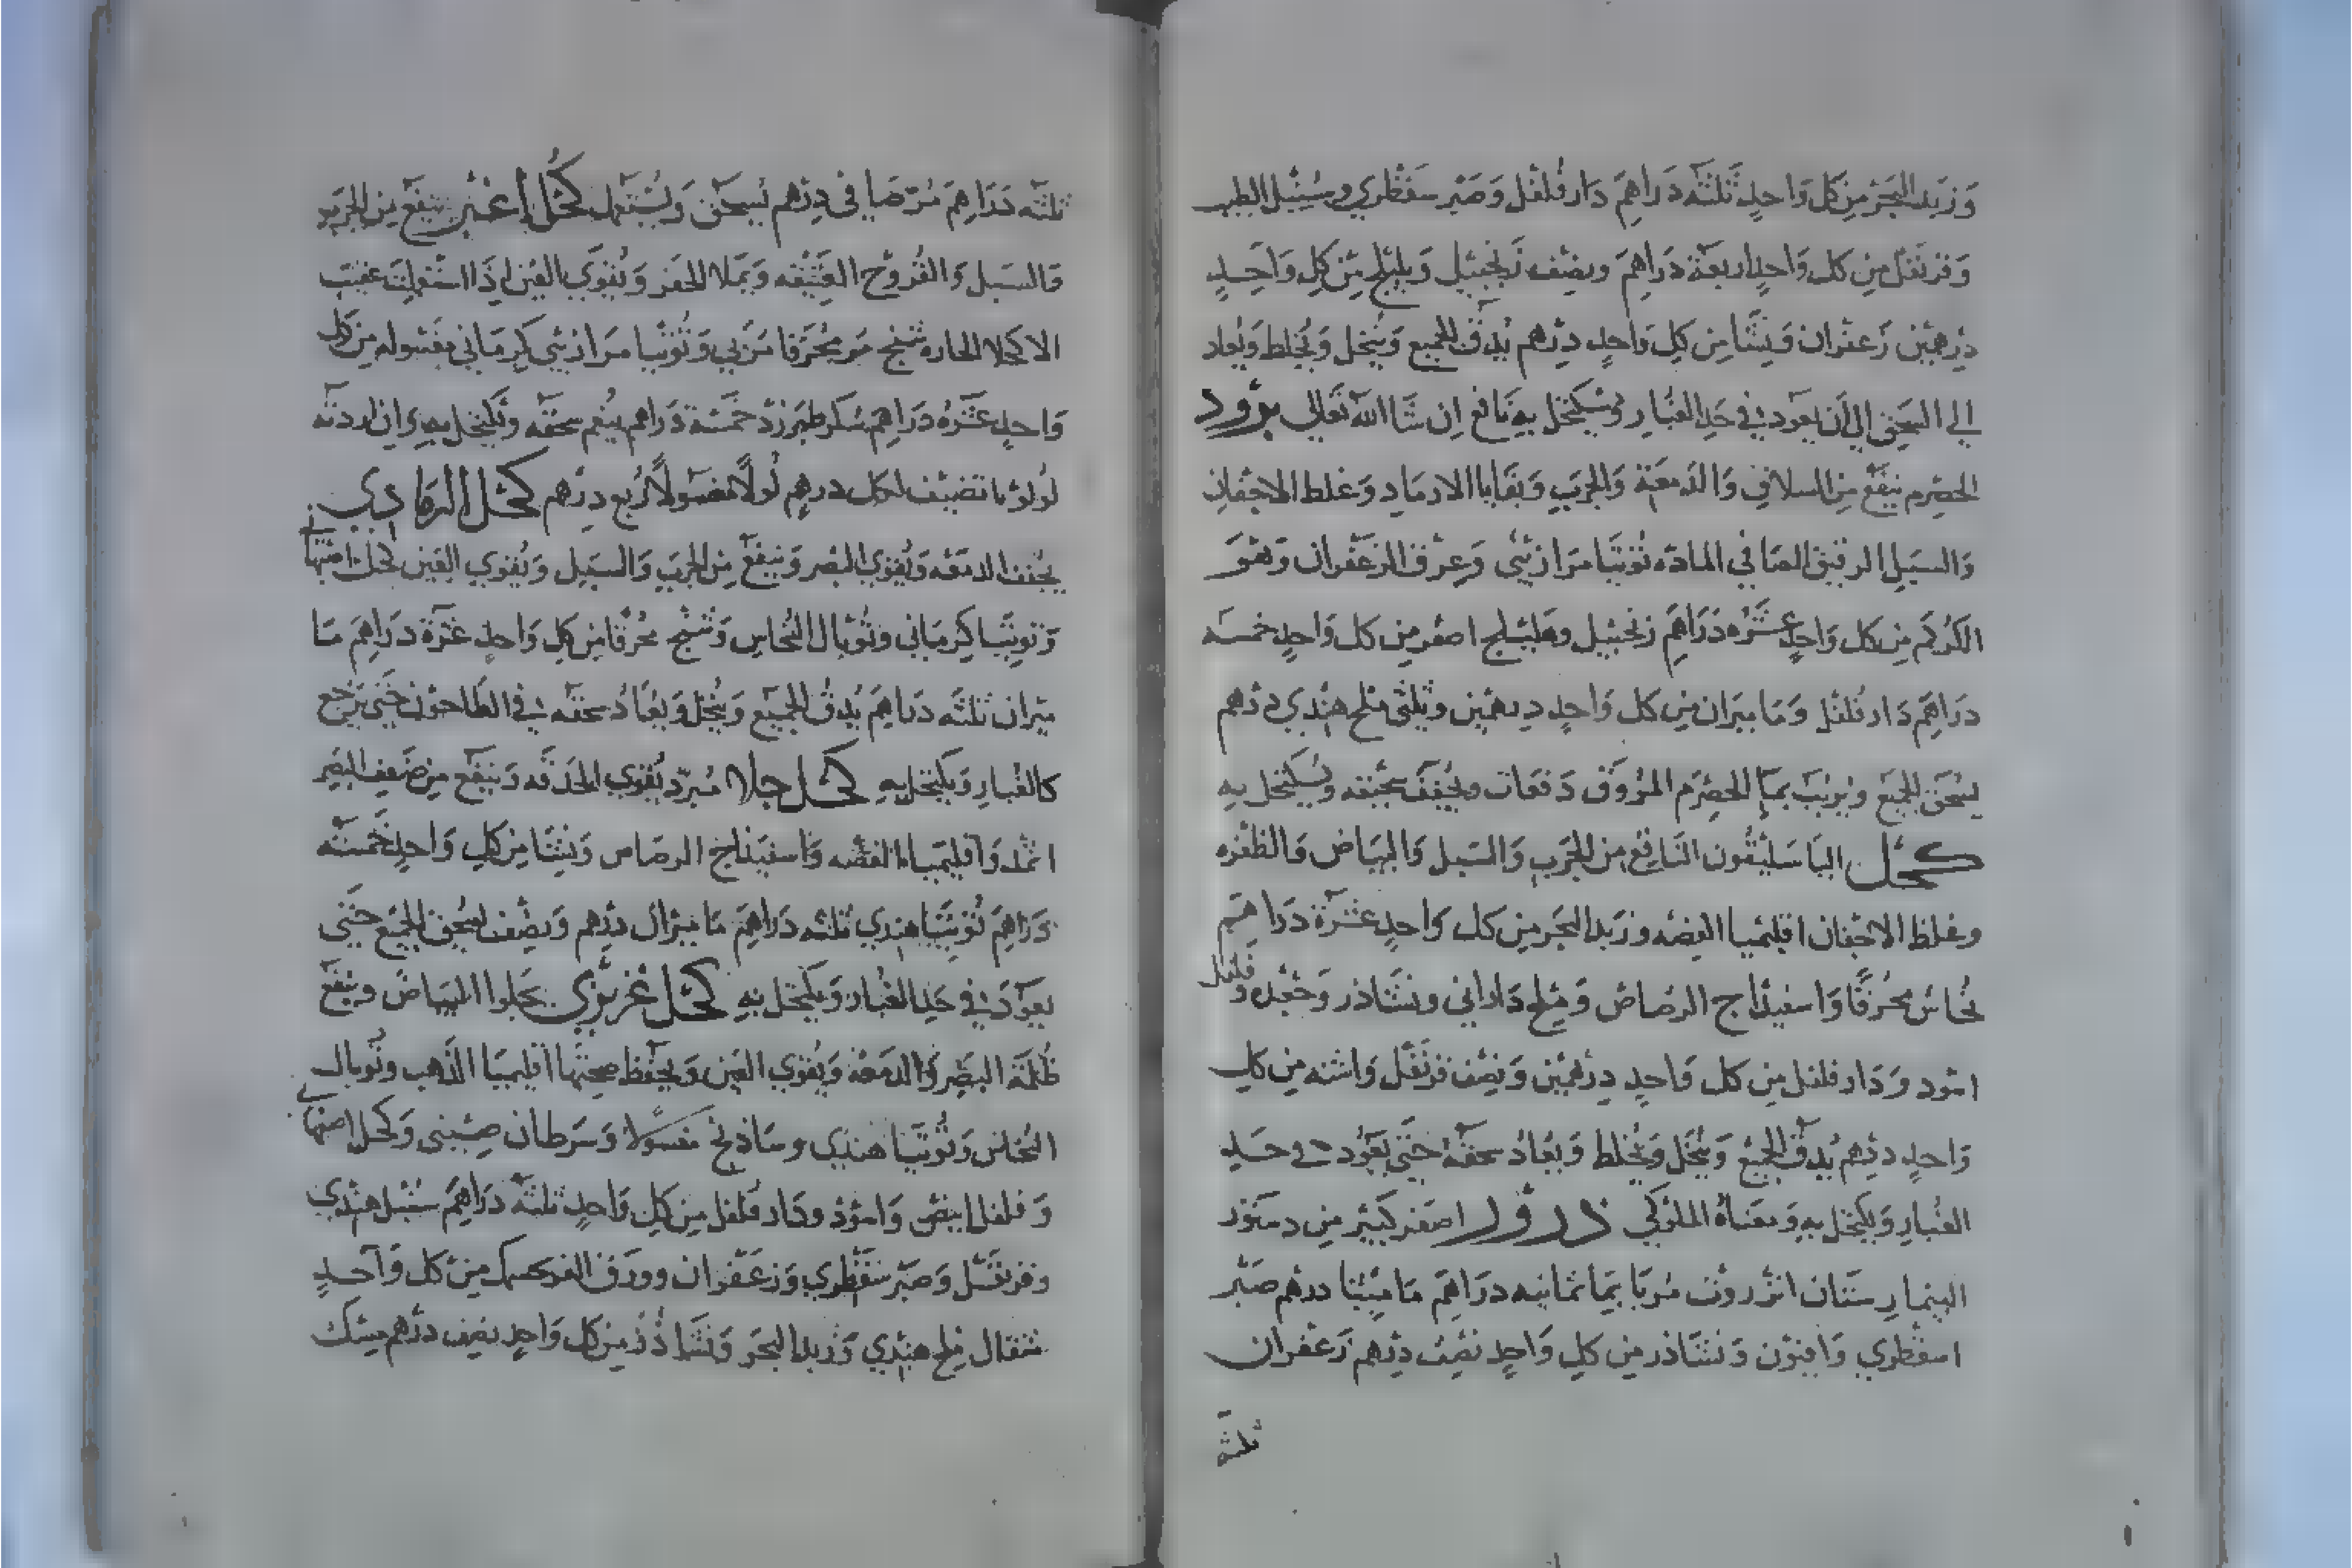 وَزَبَد البَحَر مِن كل وَاحِدٍ ثلثه دَراهِمَ دَار فُلفُل وَصَبر سقُطري وسُنبُل الطيب
وَقَرنفُل مِن كل وَاحِدٍ اربعَة دَرَاهِمَ ونصف زَنجَبيل وَهليلج مِن كلِ وَاحِدٍ
دِرهمَين زَعفَران وَنشَا مِن كلِ وَاحِدٍ دِرهم يُدق الجميع وَيُنخل وَيُخلط وَيُعاد
الي السَحق الي اَن يعوَد في حَد الغُبار وَيُكتحَل بهِ نَافع اِن شَا الله تعَالي بَرُود
الحصرِم ينفَع مِن السلاق وَالدَمعَة وَالجرَبِ وَبقَايا الارمَادِ وَغلظ الاجفَان
وَالسَبَل الرقيق الصَافي المادَه تُوتيَا مرَازبي وَعِرق الزعفَران وَهوَ
الكُركُم مِن كل وَاحِدٍ عشَره دَرَاهِمَ زنجَبيل وهَليلج اصفر مِن كل وَاحِدٍ خمسَه
درَاهِم دَار فُلفُل وَمَا ميَران مِن كل وَاحدٍ درهمَين وثُلثَي ملح هِندي دِرهم
يسُحَق الجَميع وَيُربَب بمَا الحصرَم المرَوَق دَفعَات ويُجفَف سَحيقه وَيُكتحل بهِ
كحل البَاسَليقُون النَافع مِن الجرَبِ وَالسَبل وَالبيَاض وَالظفره
وغلظ الاجفَان اقليميا الفضَه وزبَد البَحَر مِن كل وَاحِدٍ عشَرة دَراهَم
نحُاس محُرقًا وَاسفيدَاج الرصَاص وَمِلح دَاراني ونشَاذر وَجَعده وَفلفل
اسود وَدَار فلفل مِن كل وَاحِدٍ دِرهمَين وَنِصف قرنفُل وَاشنه مِن كلِ
وَاحِدٍ دِرهم يُدَق الجَميع وَيُنخَل وَيُخلط وَيُعَادُ سحَقَهُ حَتَى يَعُود في حَدِ
الغُبارِ وَيُكتحَل بهِ وَمعنَاهُ الملُوكي ذرور اصفر كبير مِن دستور
البيمارِستَان انزَروت مُربَا بمَا ثمانيه درَاهَم مَاميثَا درهم صَبر
اسقُطري وَافيُون وَنشَاذر مِن كلِ وَاحِدٍ نصِف دِرهم زَعفَران
ثلثه
ثلثَه دَرَاهِمَ مُر صَافي دِرهم يُسحَق وَيُستَعمل كحُل اغبر ينفَع مِن الجرَب
وَالسَبَل وَالقُروُح العَتيقه وَيملا الحفر وَيُقوَي العَين اذَا استُعملت عقيب
الاكحال الحاره شنج محُرَقا مُرَبي وَتُوتيا مرازبي كِرمَاني مغسوله مِن كل
وَاحدٍ عَشَره دَراهِم سُكر طبرزد خَمسَة دَراهم يُنعَم سحقَه وَيُكتحَل بهِ وَان اردته
لُولُويا تضيف لكل درهِم لُولُأ مغسُولاً رُبع دِرهم كحُل الرمَادي
يجُفف الدمعَه وَيُقوي البَصر وَينفع مِن الجرَبِ وَالسَبَل وَيُقوي العَين كحُل اصفهاني
وَتوتيَا كِرمَاني وتُوبال النُحاس وَشنج محُرقا مِن كلِ وَاحِدٍ عَشَرة درَاهِمَ مَا
ميران ثلثَه دَراهِمَ يُدق الجَميع وَيُنخَل وَيُعَادُ سحقَه في الطَاحوُن حَتىَ يَرجع
كالغُبارِ وَيُكتحَل بهِ كحُل جلا مُبرّد يُقوي الحَدقَه وَينفَع مِن ضَعف البَصرِ
اثمُد وَاقليميا الفضَه وَاسفيدَاج الرصَاص وَنشَا مِن كلِ وَاحِدٍ خمَسَه
دَرَاهِمَ تُوتيَا هِندي ثلثَه دَراهِمَ مَا ميران دِرهم وَنصِف يسُحَق الجَميع حَتي
يعوَد في حَدِ الغُبار وَيُكتحَل بهِ كحُل عَزيزي يجَلوا البيَاض وينفَع
ظُلمَة البَصَر وَالدمَعة وَيُقوي العَين وَيحفَظ صِحتَها اقليميَا الذَهب وتُوبال
النُحاس وَتُوتيَا هِندي وسَاذنج مغسُولا وَسَرطان صِيني وَكحُل اصفهاني
وَفلفل ابيَض وَاسوَد ودَار فُلفل مِن كلِ وَاحدٍ ثلثَه دَراهِمَ سُنبل هِندي
وقرنفُل وَصَبر سقُطري وَزعَفران وورَق الفرنجمشك مِن كل وَآحدٍ
مثقال مِلح هندِي وَزَبد البحَر وَنشَاذر مِن كل وَاحدٍ نصِف دِرهم مِسك